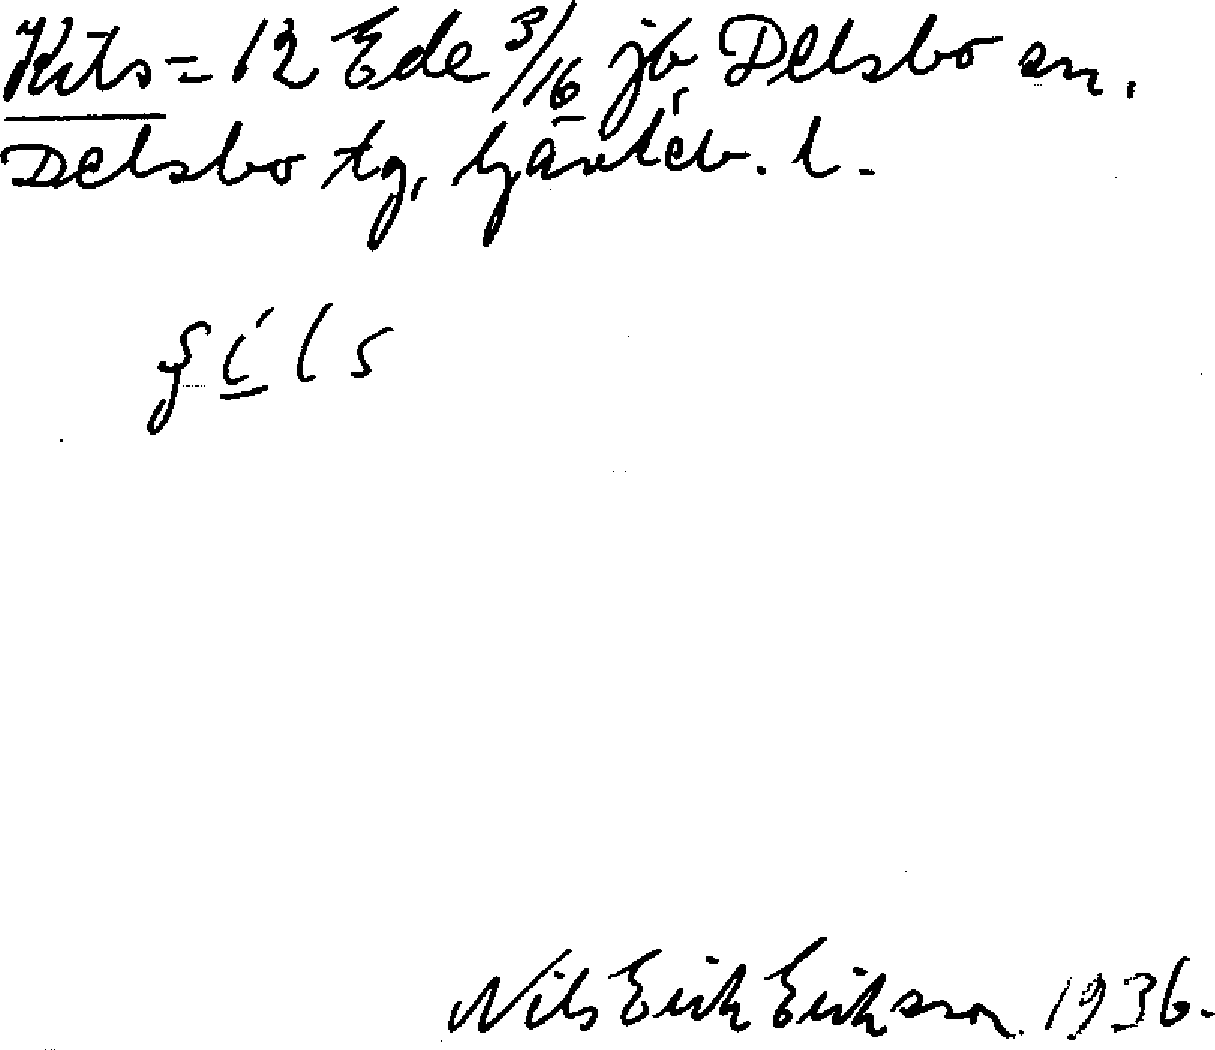 Kils = 12 Ede 3/16 jb Delsbo sn.
Delsbo tg, Gävleb. l.
Nils Erik Eriksson 1936.